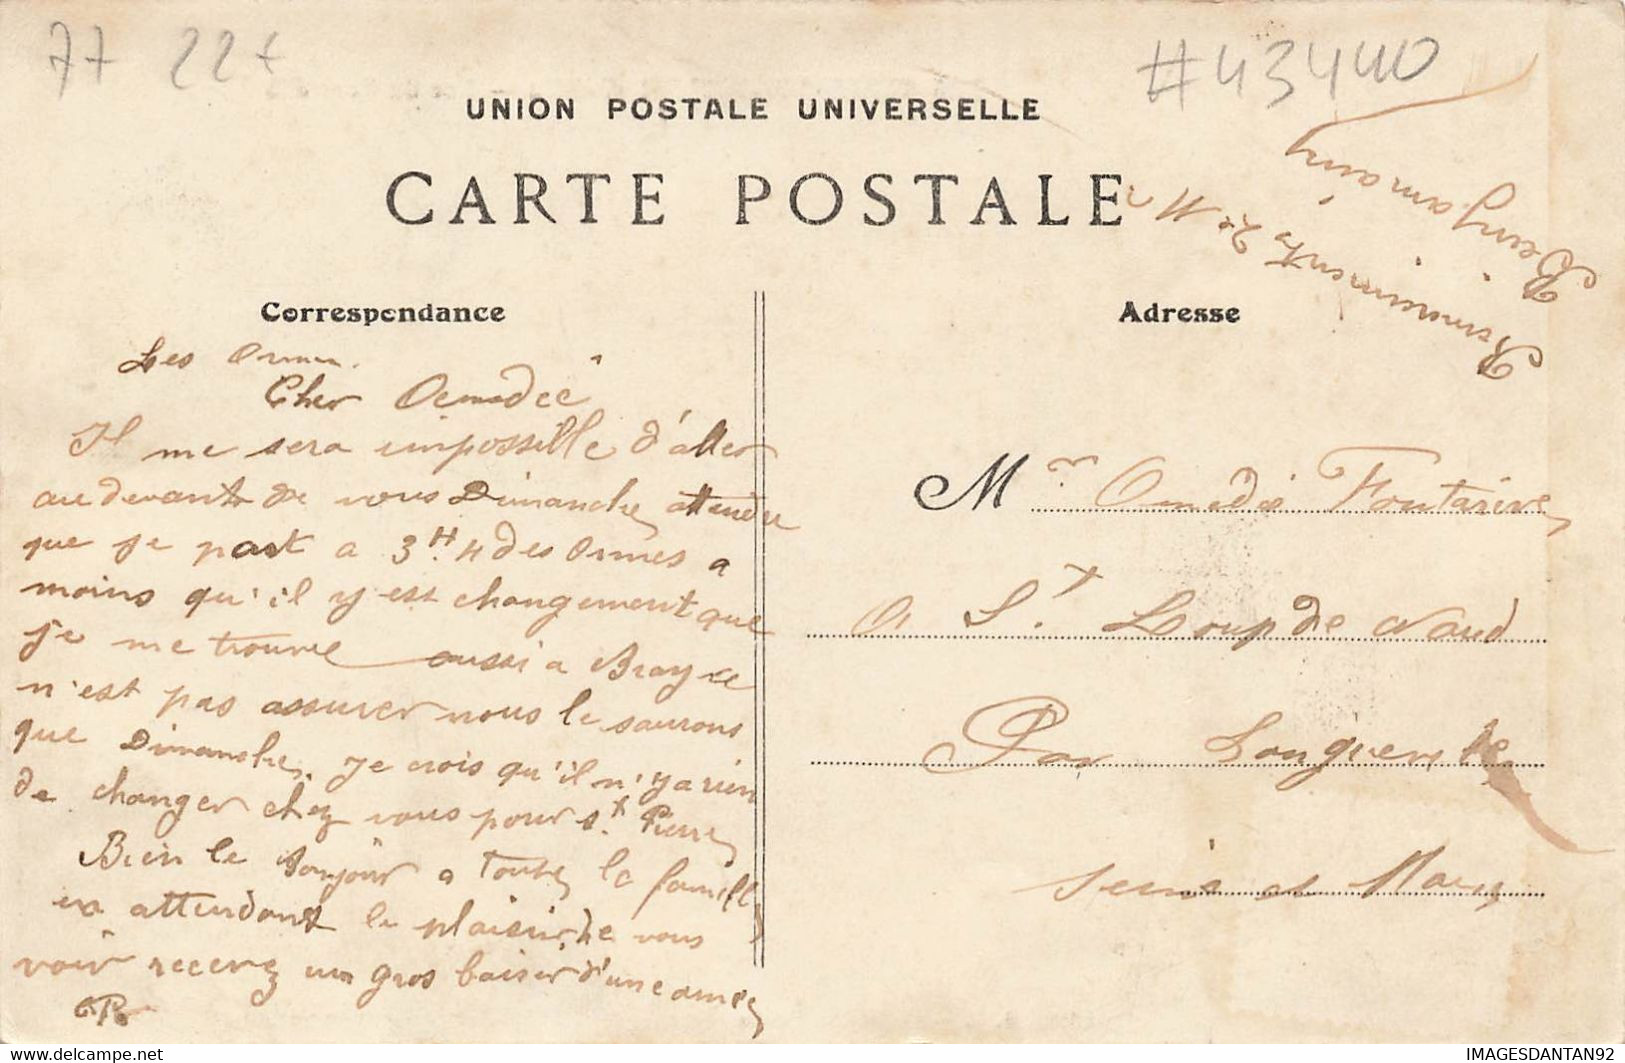 77 22t
#43440
UNION POSTALE UNIVERSELLE
CARTE POSTALE
Correspondance
Les Ormes.
Cher Oemedée
Il me sera impossille d'aller
au devant de vous Dimanche, attendu
que je part a 3H.4 des Ormes a
moins qu'il y est changement que
je me trouve aussi a Bray ce
n'est pas assurer nous le saurons
que Dimanche. Je crois qu'il n'y a rien
de changer chez vous pour St. Pierre
Bien le Bonjour a toute la famille
en attendant le plaisir de vous
voir recevez un gros baiser d'une amie
Adresse
Benjamin
Mr. Omedé Fontaine
a St. Loup de Naud
Par Longueville
Seine et Marne
IMAGESDANTAN92
delcampe.net